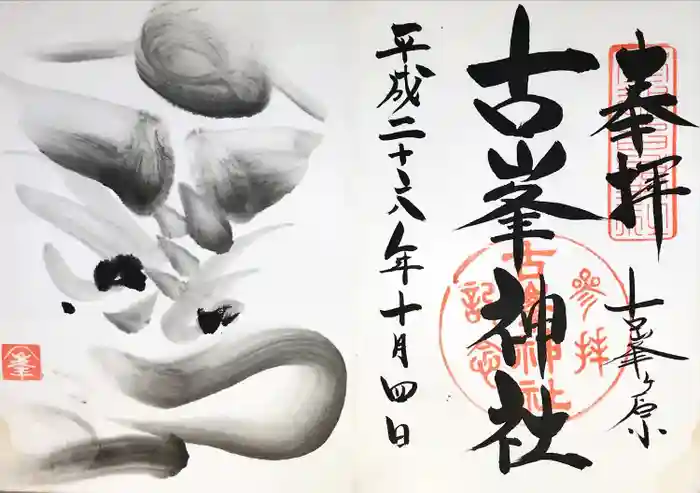 奉拝
古峯ヶ原
古峯神社
参拝
記念
古峯神社
平成二十六年十月四日
峯